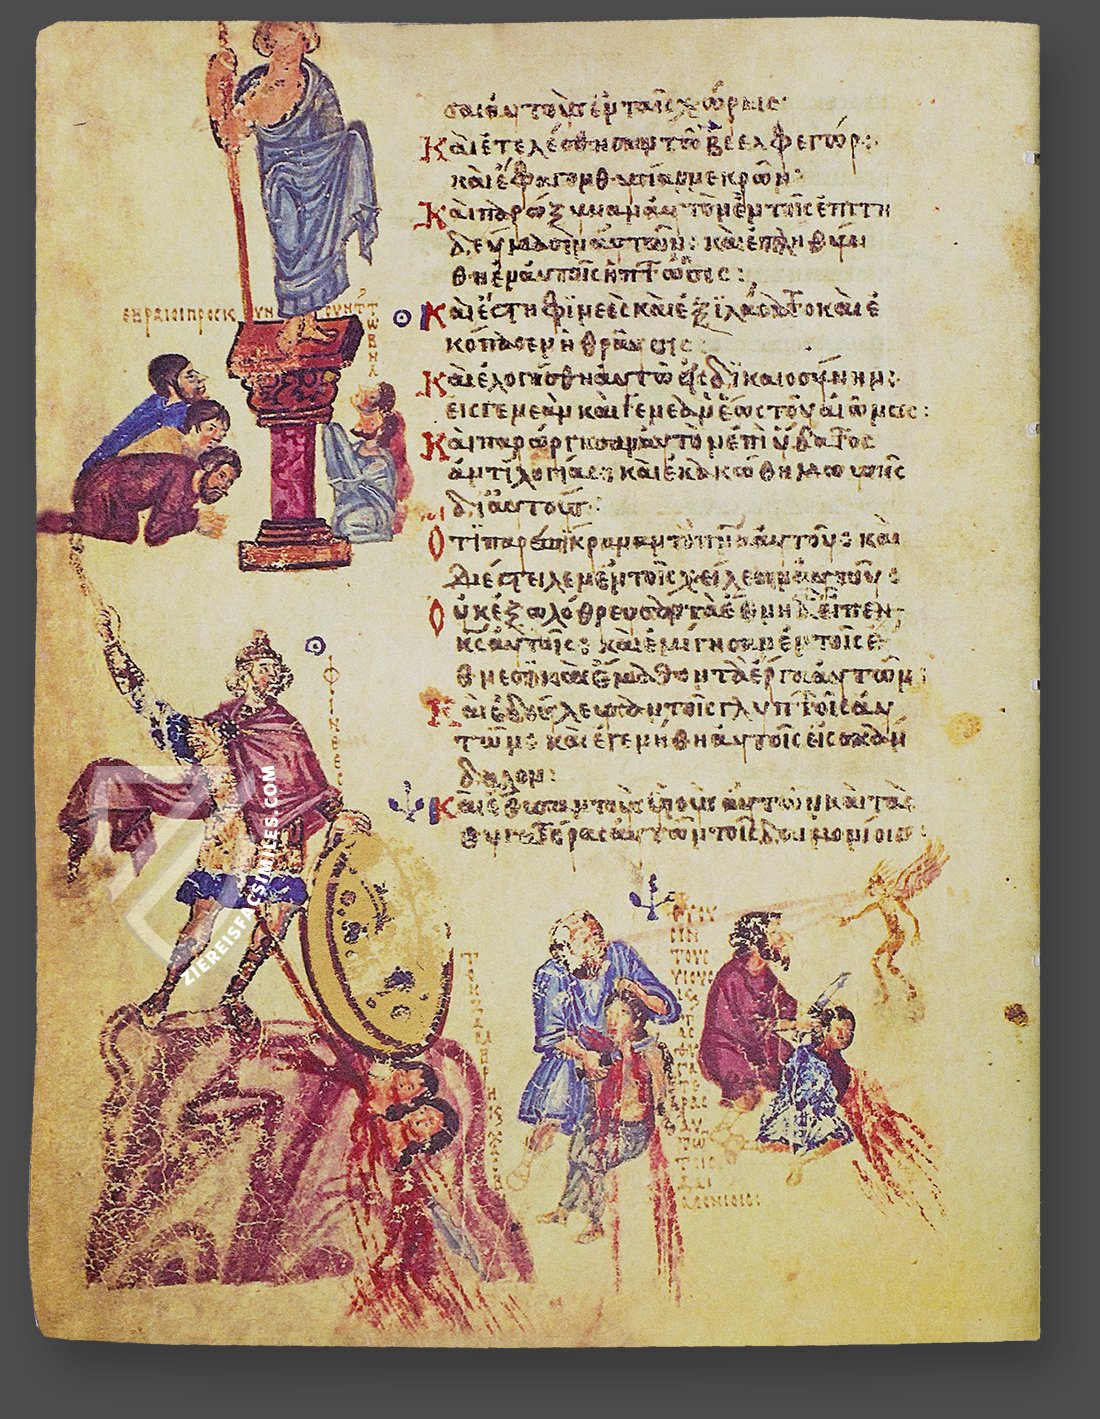 σαι αὐτοὺς ἐν ταῖς χώραις·
Καὶ ἐτελέσθησαν τῶ βεελφεγώρ:
καὶ ἔφαγον θυσίας νεκρῶν:
Καὶ παρώξυναν αὐτὸν ἐν τοῖς ἐπιτη
δεύμασιν αὐτῶν: καὶ ἐπληθύν
θη ἐν αὐτοῖς ἡ πτῶσις:
ΕΒΡΑΙΟΙ ΠΡΟΣΚΥΝΟΥΝΤ ΤΩ ΒΗΛ
Καὶ ἔστη φϊνεὲς καὶ ἐξϊλάσατο καὶ ἐ
κόπασεν ἡ θραῦσις:
Καὶ ἐλογίσθη αὐτῶ εἰς δϊκαιοσύνην:
εἰς γενεὰν καὶ γενεὰν ἕως τοῦ αἰῶνος:
Καὶ παρώργησαν αὐτὸν ἐπὶ ὕδατος
ἀντιλογίας: καὶ ἐκακώθη μωυσῆς
δϊ αὐτούς:
Ὅτι παρεπίκραναν τὸ πνα αὐτοῦ: καὶ
διέστειλεν ἐν τοῖς χείλεσιν αὐτοῦ:
Οὐκ ἐξωλόθρευσαν τὰ ἔθνη ἃ εἶπεν
κς αὐτοῖς: καὶ ἐμίγησαν ἐν τοῖς ἔ
θνεσϊν καὶ ἔμαθον τὰ ἔργα αὐτῶν:
Καὶ ἐδούλευσαν τοῖς γλυπτοῖς αὐ
τῶν: καὶ ἐγενήθη αὐτοῖς εἰς σκάν
δαλον:
Καὶ ἔθυσαν τοὺς υἱοὺς αὐτῶν καὶ τὰς
θυγατέρας αὐτῶν τοῖς δαιμονίοις
ΦΙΝΕΕC
ΘΥΟΥ
CΙΝ
ΤΟΥC
ΥΙΟΥC
ΔΑΙ
ΜΟΝΙΟΙC:
ZIEREISFACSIMILES.COM